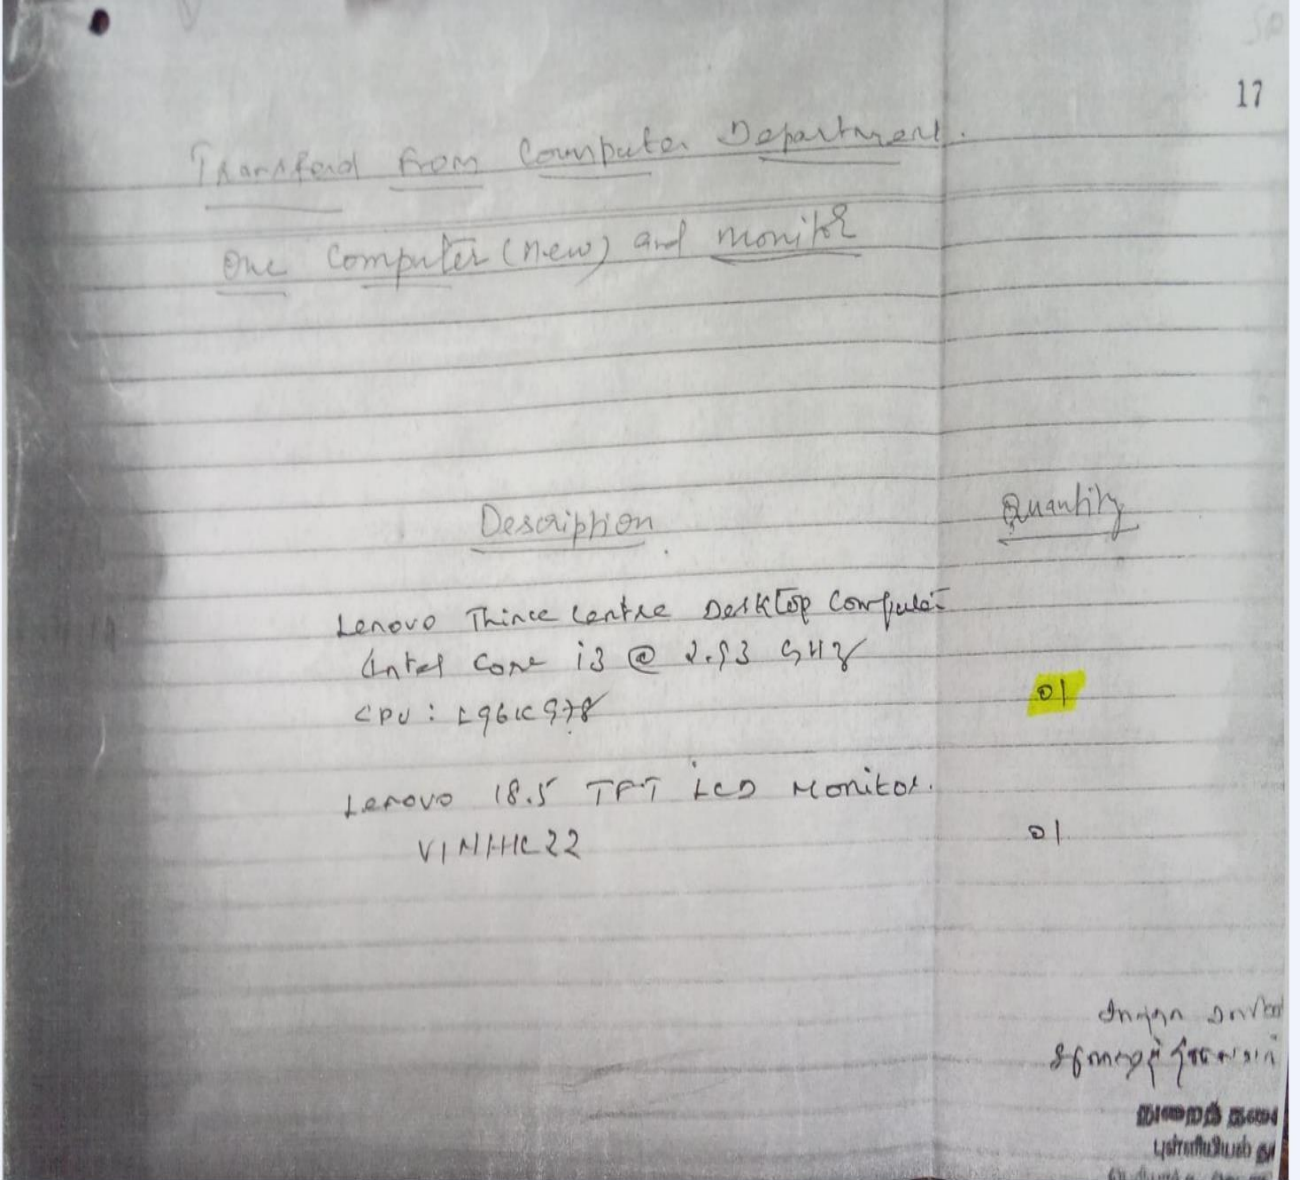 17
Transferd from Computer Department.
One Computer (new) and monitor
Description Quantity
Lenovo Thince Centre Desktop Computer
Intel Core i3 @ 2.93 GHz
CPU : L96K978 01
Lenovo 18.5 TFT LCD Monitor.
V1NHHC22 01
துறைத் தலை
புள்ளியியல் து